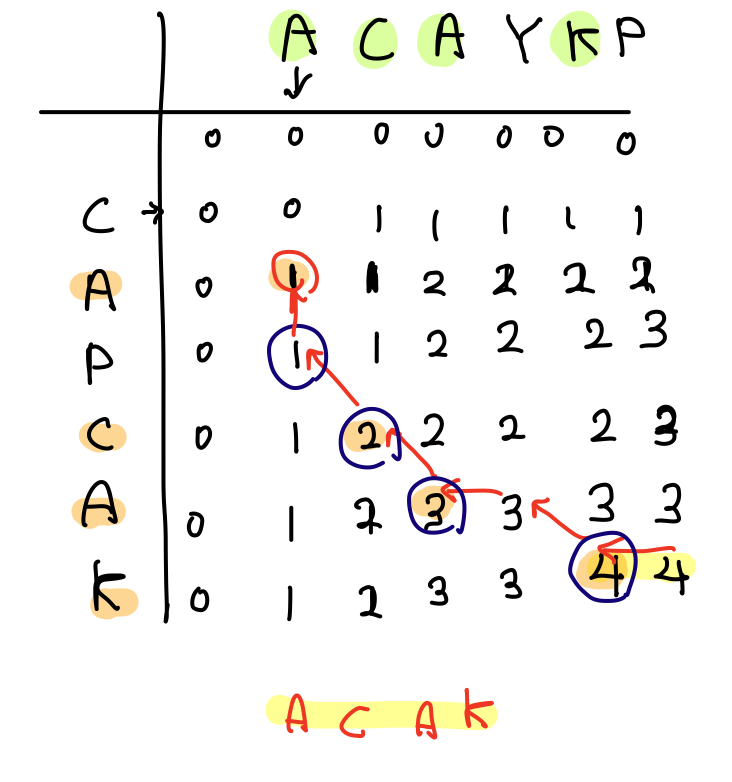 A C A Y K P
0 0 0 0 0 0 0
C 0 0 1 1 1 1 1
A 0 1 1 2 2 2 2
P 0 1 1 2 2 2 3
C 0 1 2 2 2 2 3
A 0 1 2 3 3 3 3
K 0 1 2 3 3 4 4
A C A K